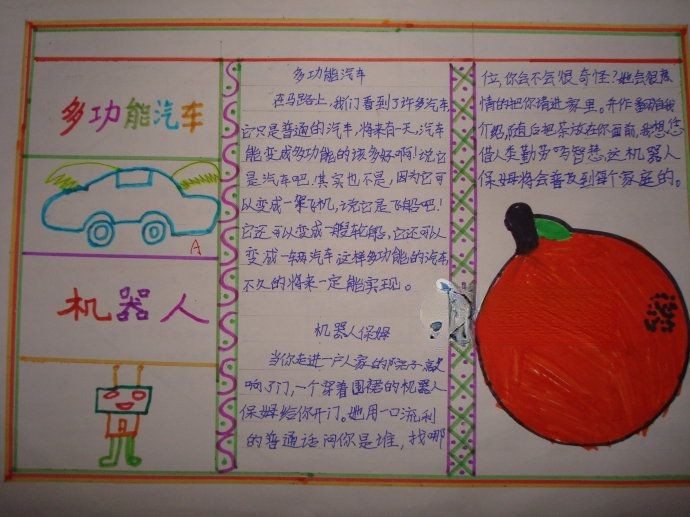 多功能汽车
A
机器人
多功能汽车
在马路上,我们看到了许多汽车,
它只是普通的汽车,将来有一天,汽车
能变成多功能的该多好啊!说它
是汽车吧!其实也不是,因为它可
以变成一架飞机,说它是飞船吧!
它还可以变成一艘轮船,它还可以
变成一辆汽车这样多功能的汽车,
不久的将来一定能实现。
机器人保姆
当你走进一户人家的院子敲
响了门,一个穿着围裙的机器人
保姆给你开门。她用一口流利
的普通话问你是谁,找哪
位,你会不会很奇怪?她会很热
情的把你请进家里。并作自我
介绍,随后把茶放在你面前,我想您
借人类勤劳与智慧,这机器人
保姆将会普及到每个家庭的。